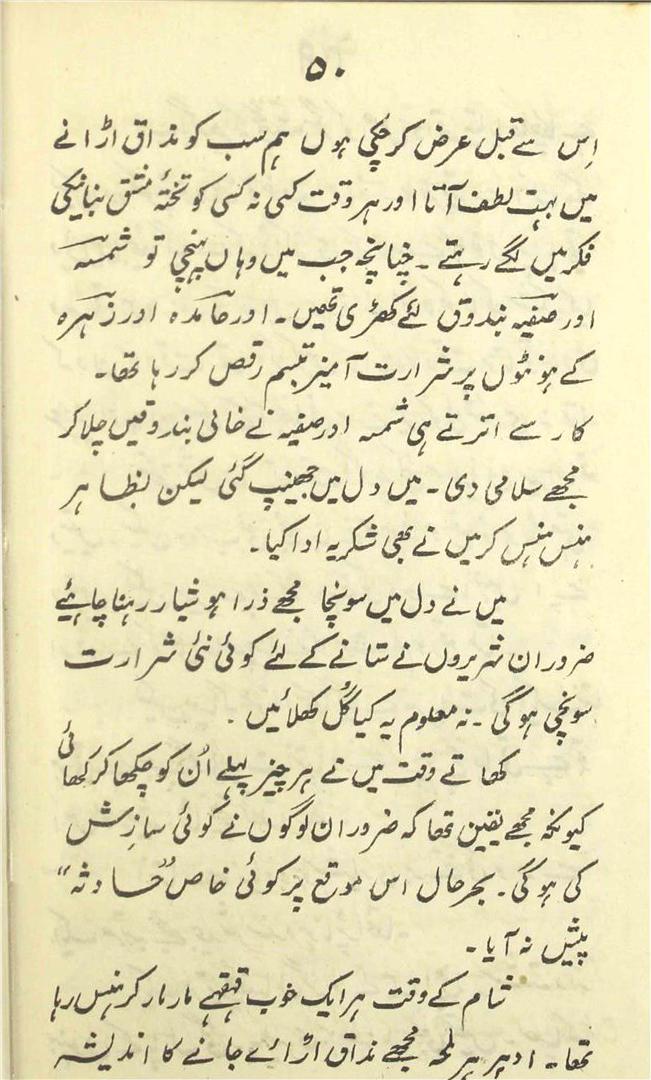 ۵۰
اِس سے قبل عرض کر چکی ہوں ہم سب کو مذاق اڑانے
میں بہت لطف آتا اور ہر وقت کسی نہ کسی کو تختۂ مشق بنانیکی
فکر میں لگے رہتے ۔ چنانچہ جب میں وہاں پہنچی تو شمسہ
اور صفیہ بندوق لئے کھڑی تھیں ۔ اور حامدہ اور زہرہ
کے ہونٹوں پر شرارت آمیز تبسم رقص کر رہا تھا ۔
کار سے اترتے ہی شمسہ اور صفیہ نے خالی بندوقیں چلا کر
مجھے سلامی دی ۔ میں دل میں جھینپ گئی لیکن بظاہر
ہنس ہنس کر میں نے بھی شکریہ ادا کیا ۔
میں نے دل میں سونچا مجھے ذرا ہوشیار رہنا چاہئیے
ضرور ان شریروں نے ستانے کے لئے کوئی نئی شرارت
سونچی ہوگی ۔ نہ معلوم یہ کیا گُل کھلائیں ۔
کھاتے وقت میں نے ہر چیز پہلے اُن کو چکھا کر کھائی
کیونکہ مجھے یقین تھا کہ ضرور ان لوگوں نے کوئی سازش
کی ہوگی ۔ بہرحال اس موقع پر کوئی خاص "حادثہ"
پیش نہ آیا ۔
شام کے وقت ہر ایک خوب قہقہے مار مار کر ہنس رہا
تھا ۔ ادہر ہر لمحہ مجھے مذاق اڑائے جانے کا اندیشہ